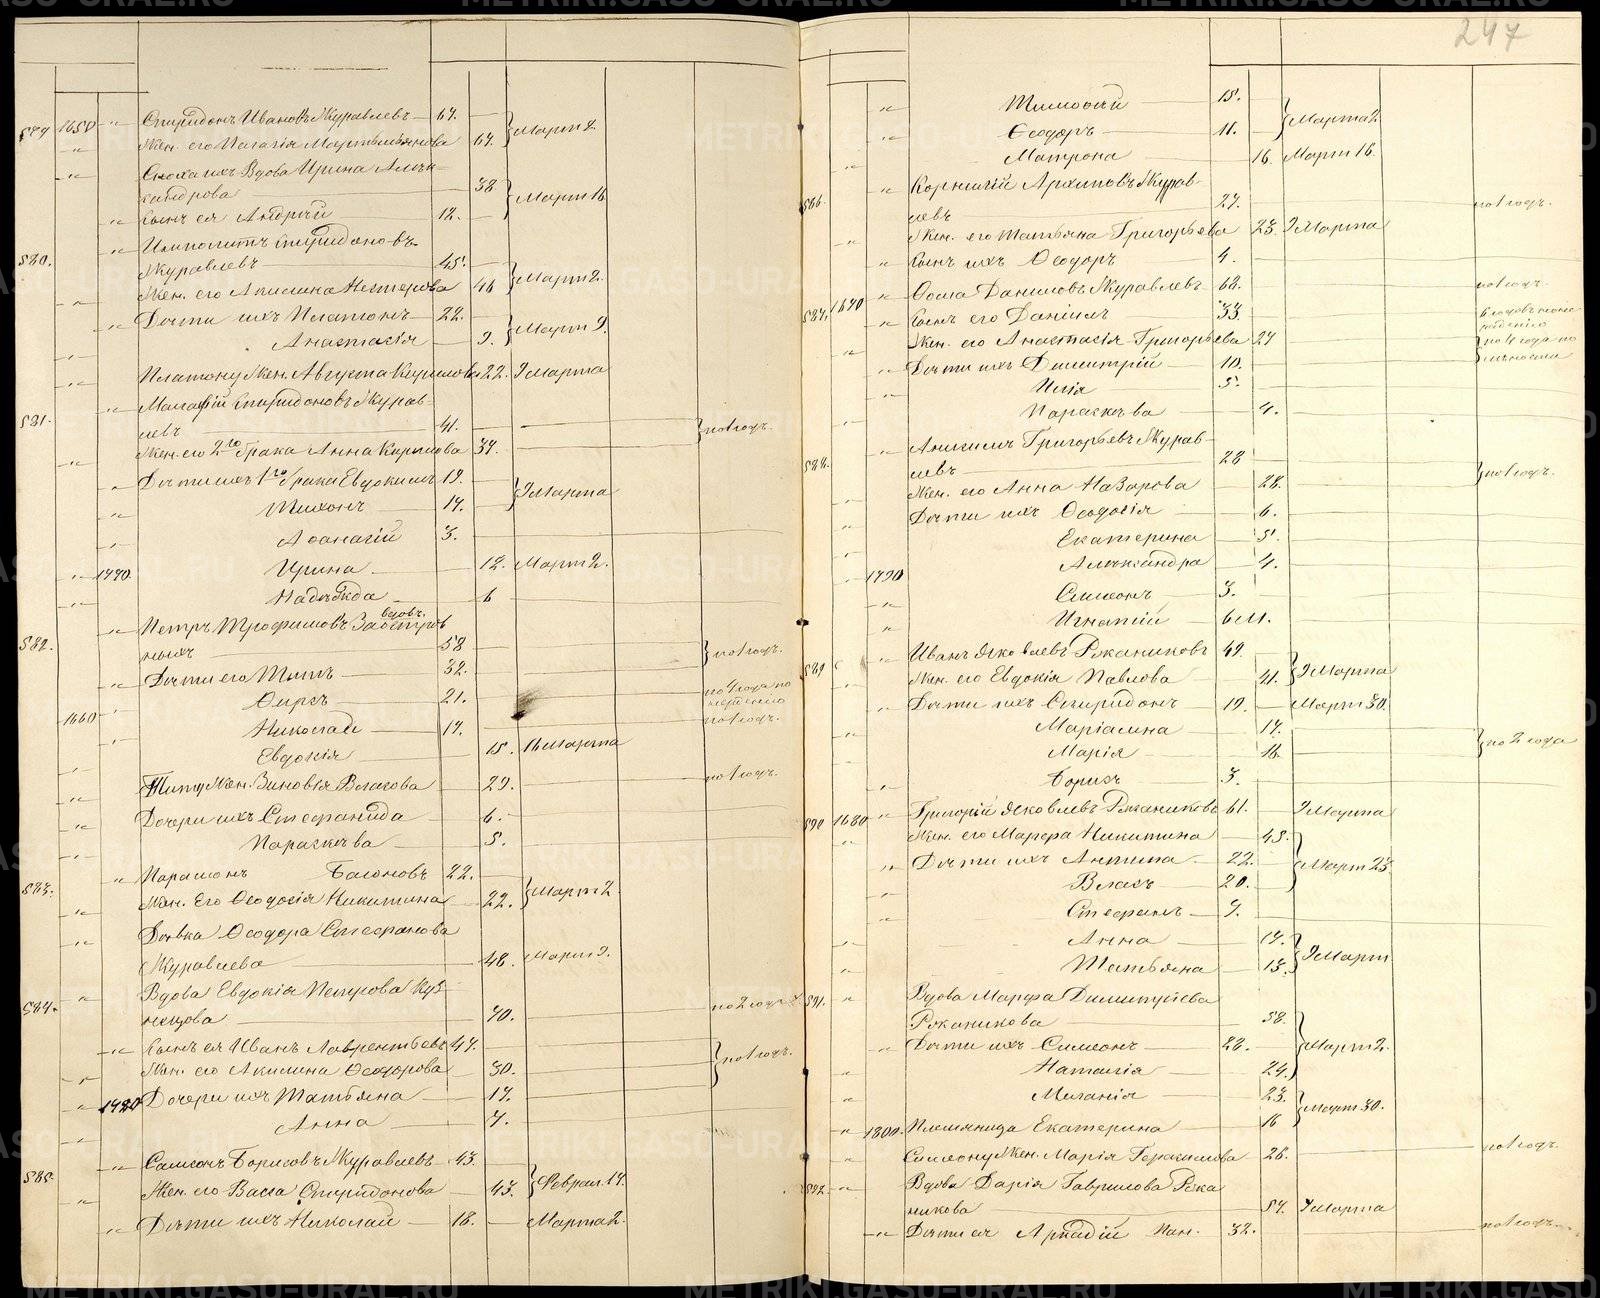 247
579 1650 " Спиридонъ Ивановъ Журавлевъ 67.
" Жен. его Пелагія Мартемьянова 64. Март 2.
" Сноха ихъ Вдова Ирина Алек-
сандрова 38
" Сынъ ея Андрей 12. Март 16
580. " Ипполитъ Спиридоновъ
Журавлевъ 45.
" Жен. его Акилина Нестерова 46 Март 2.
" Дѣти ихъ Платонъ 22.
" Анастасія 9. Март 9.
" Платону Жен. Августа Кирилова 22. 9 Марта
581. " Малафій Спиридоновъ Журав-
левъ 41. по 1 год.
" Жен. его 2го брака Анна Кирилова 34.
" Дѣти ихъ 1го брака Евдокимъ 19.
" Тихонъ 14. 9 Марта
" Аѳанасій 3.
" 1770. Ирина 12. Март 2.
" Надежда 6
582. " Петръ Трофимовъ вдовъ.
ныхъ 58 по 1 год.
" Дѣти его Титъ 32.
" Ѳирсъ 21. по 4 года по
1660 Николай 17. по 1 год.
" Евдокія 15. 16 Марта
" Титу Жен. Зиновія Власова 29. по 1 год.
" Дочери ихъ Стефанида 6.
" Параскева 5.
583. " Парамонъ 22.
" Жен. Его Ѳеодосія Никитина 22. Март 2.
" Дѣвка Ѳеодора Стефанова
Журавлева 48. Март 9.
584. " Вдова Евдокія Петрова Куз-
нецова 70. по 2 год.
" Сынъ ея Иванъ Лаврентьевъ 47.
" Жен. его Акилина Ѳеодорова 30. по 1 год.
" 1780 Дочери ихъ Татьяна 17.
" Анна 7.
585. " Самсонъ Борисовъ Журавлевъ 43.
" Жен. его Васса Спиридонова 43. Феврал. 14.
" Дѣти ихъ Николай 18. Марта 2.
" Тимоѳей 15.
" Ѳеодоръ 11. Марта 2
" Матрона 16. Март 16.
586. " Корнилій Архиповъ Журав-
левъ 27. по 1 год.
" Жен. его Татьяна Григорьева 23. 9 Марта
" Сынъ ихъ Ѳеодоръ 4.
587. 1670 " Ѳома Даниловъ Журавлевъ 68. по 1 год.
" Сынъ его Даніилъ 33.
" Жен. его Анастасія Григорьева 27 по 4 года по
" Дѣти ихъ Димитрій 10.
" Илія 5.
" Параскева 4.
588. " Анисимъ Григорьевъ Журав-
левъ 28
" Жен. его Анна Назарова 28. по 1 год.
" Дѣти ихъ Ѳеодосія 6.
" Екатерина 5.
1790 Александра 4.
" Симеонъ 3.
" Игнатій 6 м.
589 " Иванъ Яковлевъ 49.
" Жен. его Евдокія Павлова 41. 9 Марта
" Дѣти ихъ Спиридонъ 19. Март 30.
" Маріамна 17.
" Марія 16. по 2 года
" Борисъ 3.
590 1680 " Григорій Яковлевъ 61. 9 Марта
" Жен. его Марѳа Никитина 45.
" Дѣти ихъ Антипа 22. Март 23
" Власъ 20.
" Стефанъ 7.
" Анна 17.
" Татьяна 13. 9 Март
591. " Вдова Марѳа Димитріева
58.
" Дѣти ихъ Симеонъ 28. Март 2.
" Наталія 24.
" Меланія 23. Март 30.
" 1800. Племянница Екатерина 16
" Симеону Жен. Марія Герасимова 26. по 1 год.
592. " Вдова Дарія Гаврилова
никова 57. 9 Марта
" Дѣти ея Аркадій 32. по 1 год.